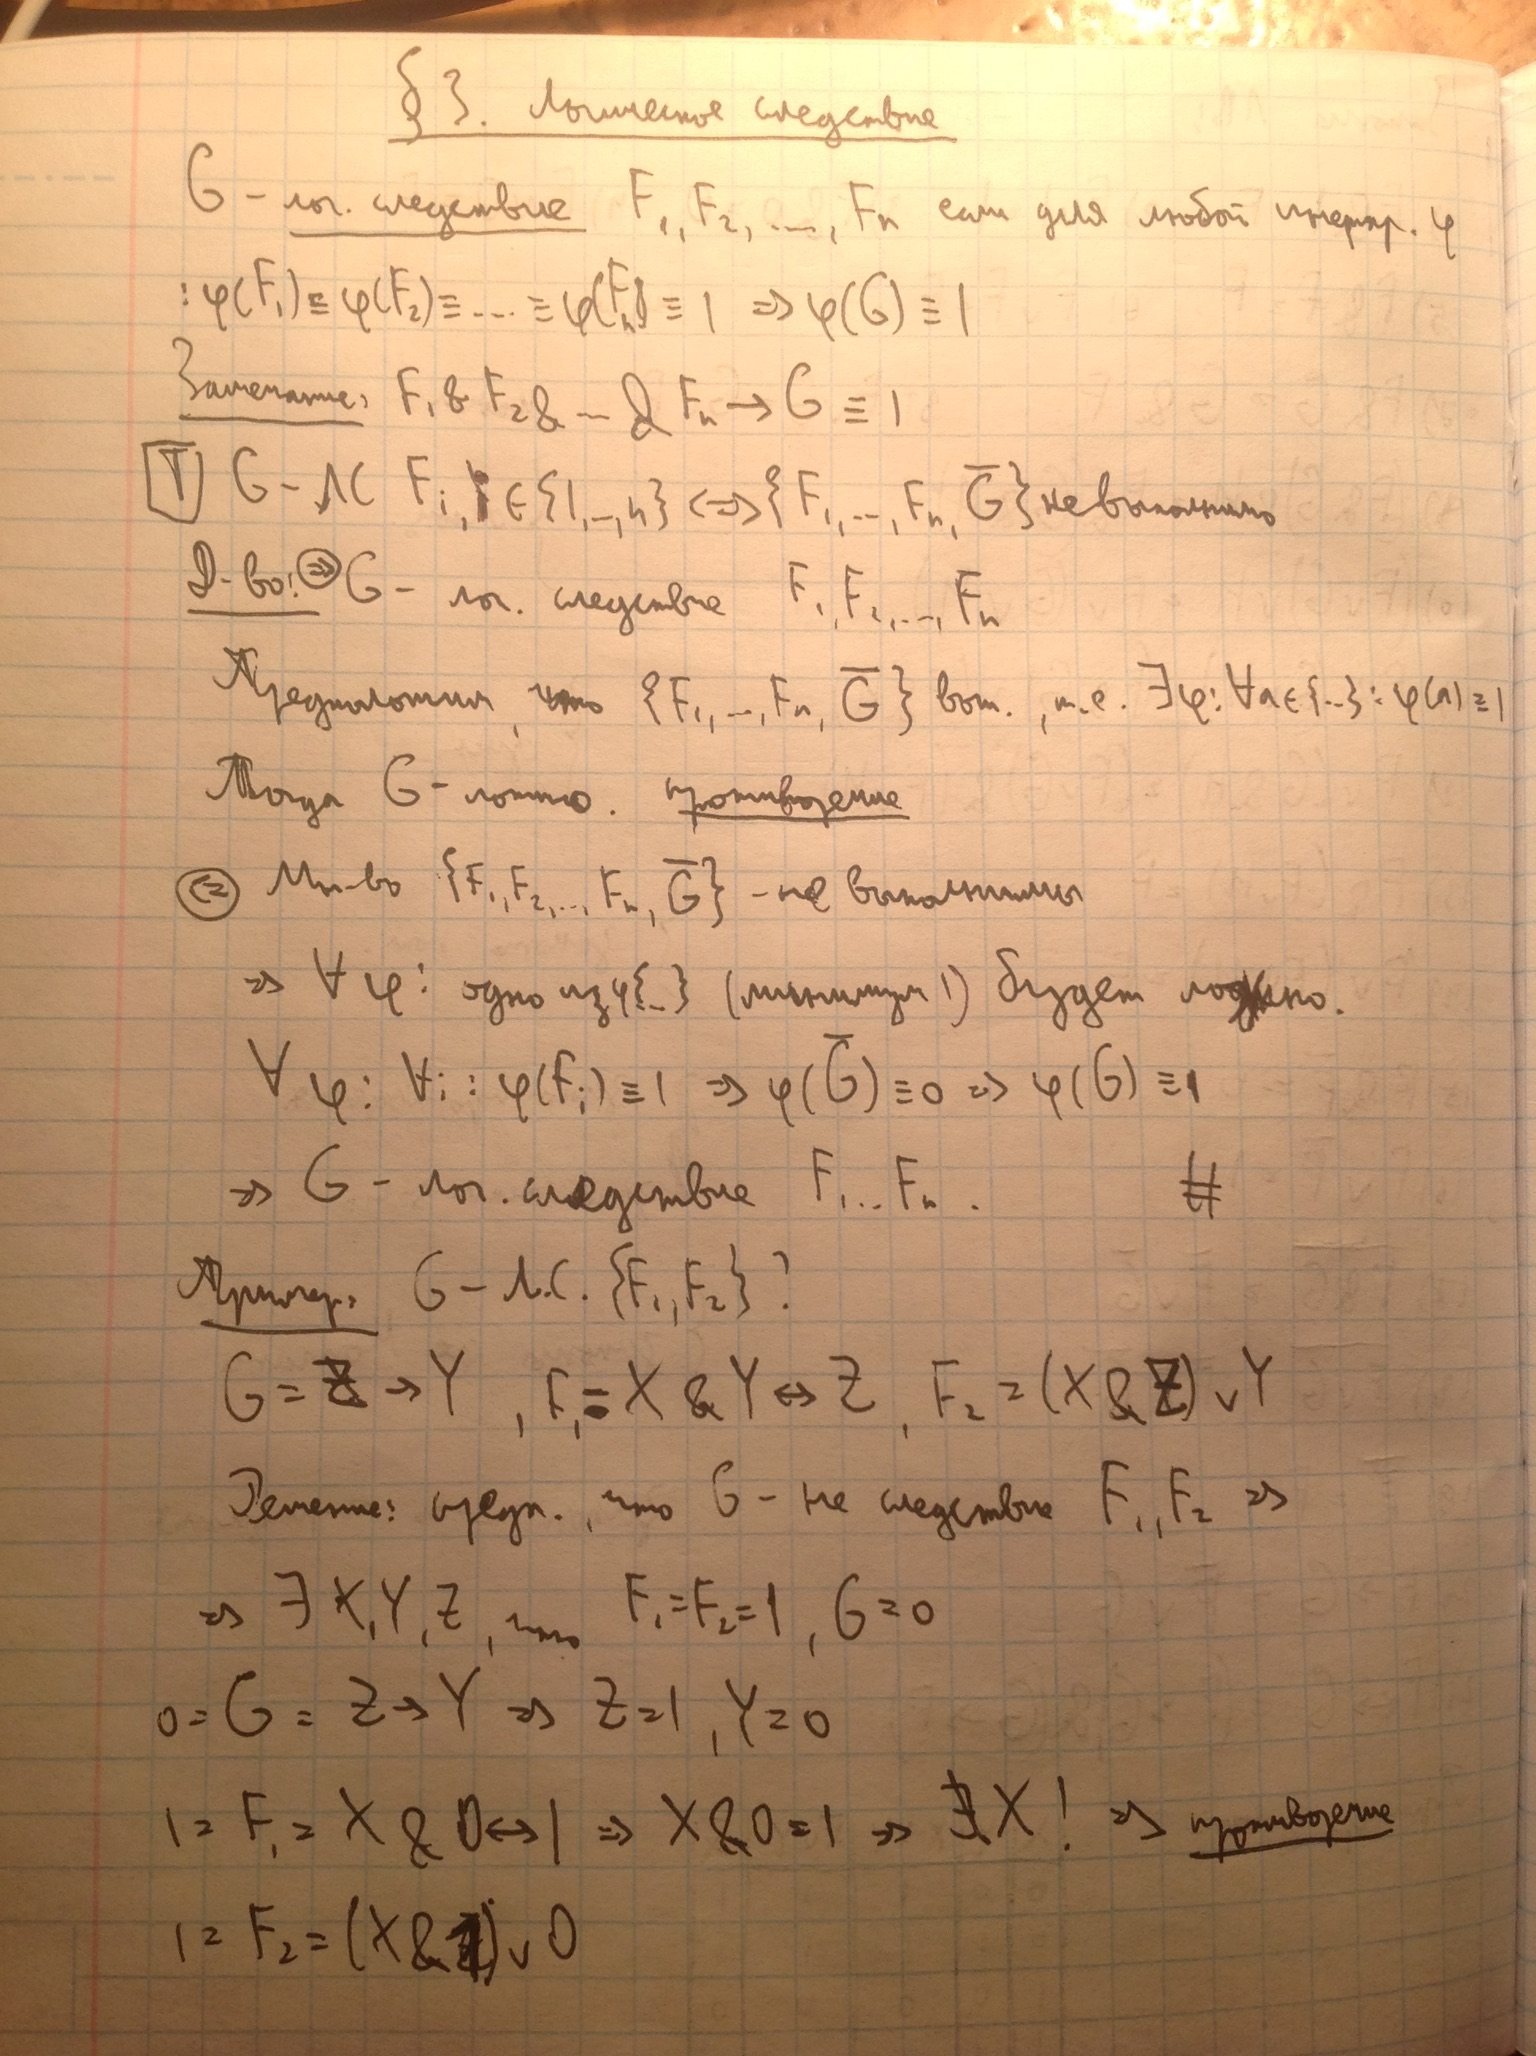 §3. Логическое следствие
G – лог. следствие F₁, F₂, ..., Fₙ если для любой интерпр. φ
: φ(F₁) ≡ φ(F₂) ≡ ... ≡ φ(Fₙ) ≡ 1 ⇒ φ(G) ≡ 1
Замечание: F₁ & F₂ & ... & Fₙ → G ≡ 1
[T] G – ЛС Fᵢ, i ∈ {1, ..., n} ⇔ {F₁, ..., Fₙ, G̅} невыполнимо
Д-во: ⇒ G – лог. следствие F₁, F₂, ..., Fₙ
Предположим, что {F₁, ..., Fₙ, G̅} вып., т.е. ∃φ: ∀a ∈ {...}: φ(a) ≡ 1
Тогда G – ложно. противоречие
⇐ Мн-во {F₁, F₂, ..., Fₙ, G̅} – не выполнимы
⇒ ∀φ: одно из φ{...} (минимум 1) будет ложно.
∀φ: ∀i: φ(Fᵢ) ≡ 1 ⇒ φ(G̅) ≡ 0 ⇒ φ(G) ≡ 1
⇒ G – лог. следствие F₁...Fₙ. #
Пример: G – Л.С. {F₁, F₂}?
G = Z → Y, F₁ = X & Y ↔ Z, F₂ = (X & Z) ∨ Y
Решение: предп., что G – не следствие F₁, F₂ ⇒
⇒ ∃ X, Y, Z, что F₁ = F₂ = 1, G = 0
0 = G = Z → Y ⇒ Z = 1, Y = 0
1 = F₁ = X & 0 ↔ 1 ⇒ X & 0 = 1 ⇒ ∄X! ⇒ противоречие
1 = F₂ = (X & 1) ∨ 0